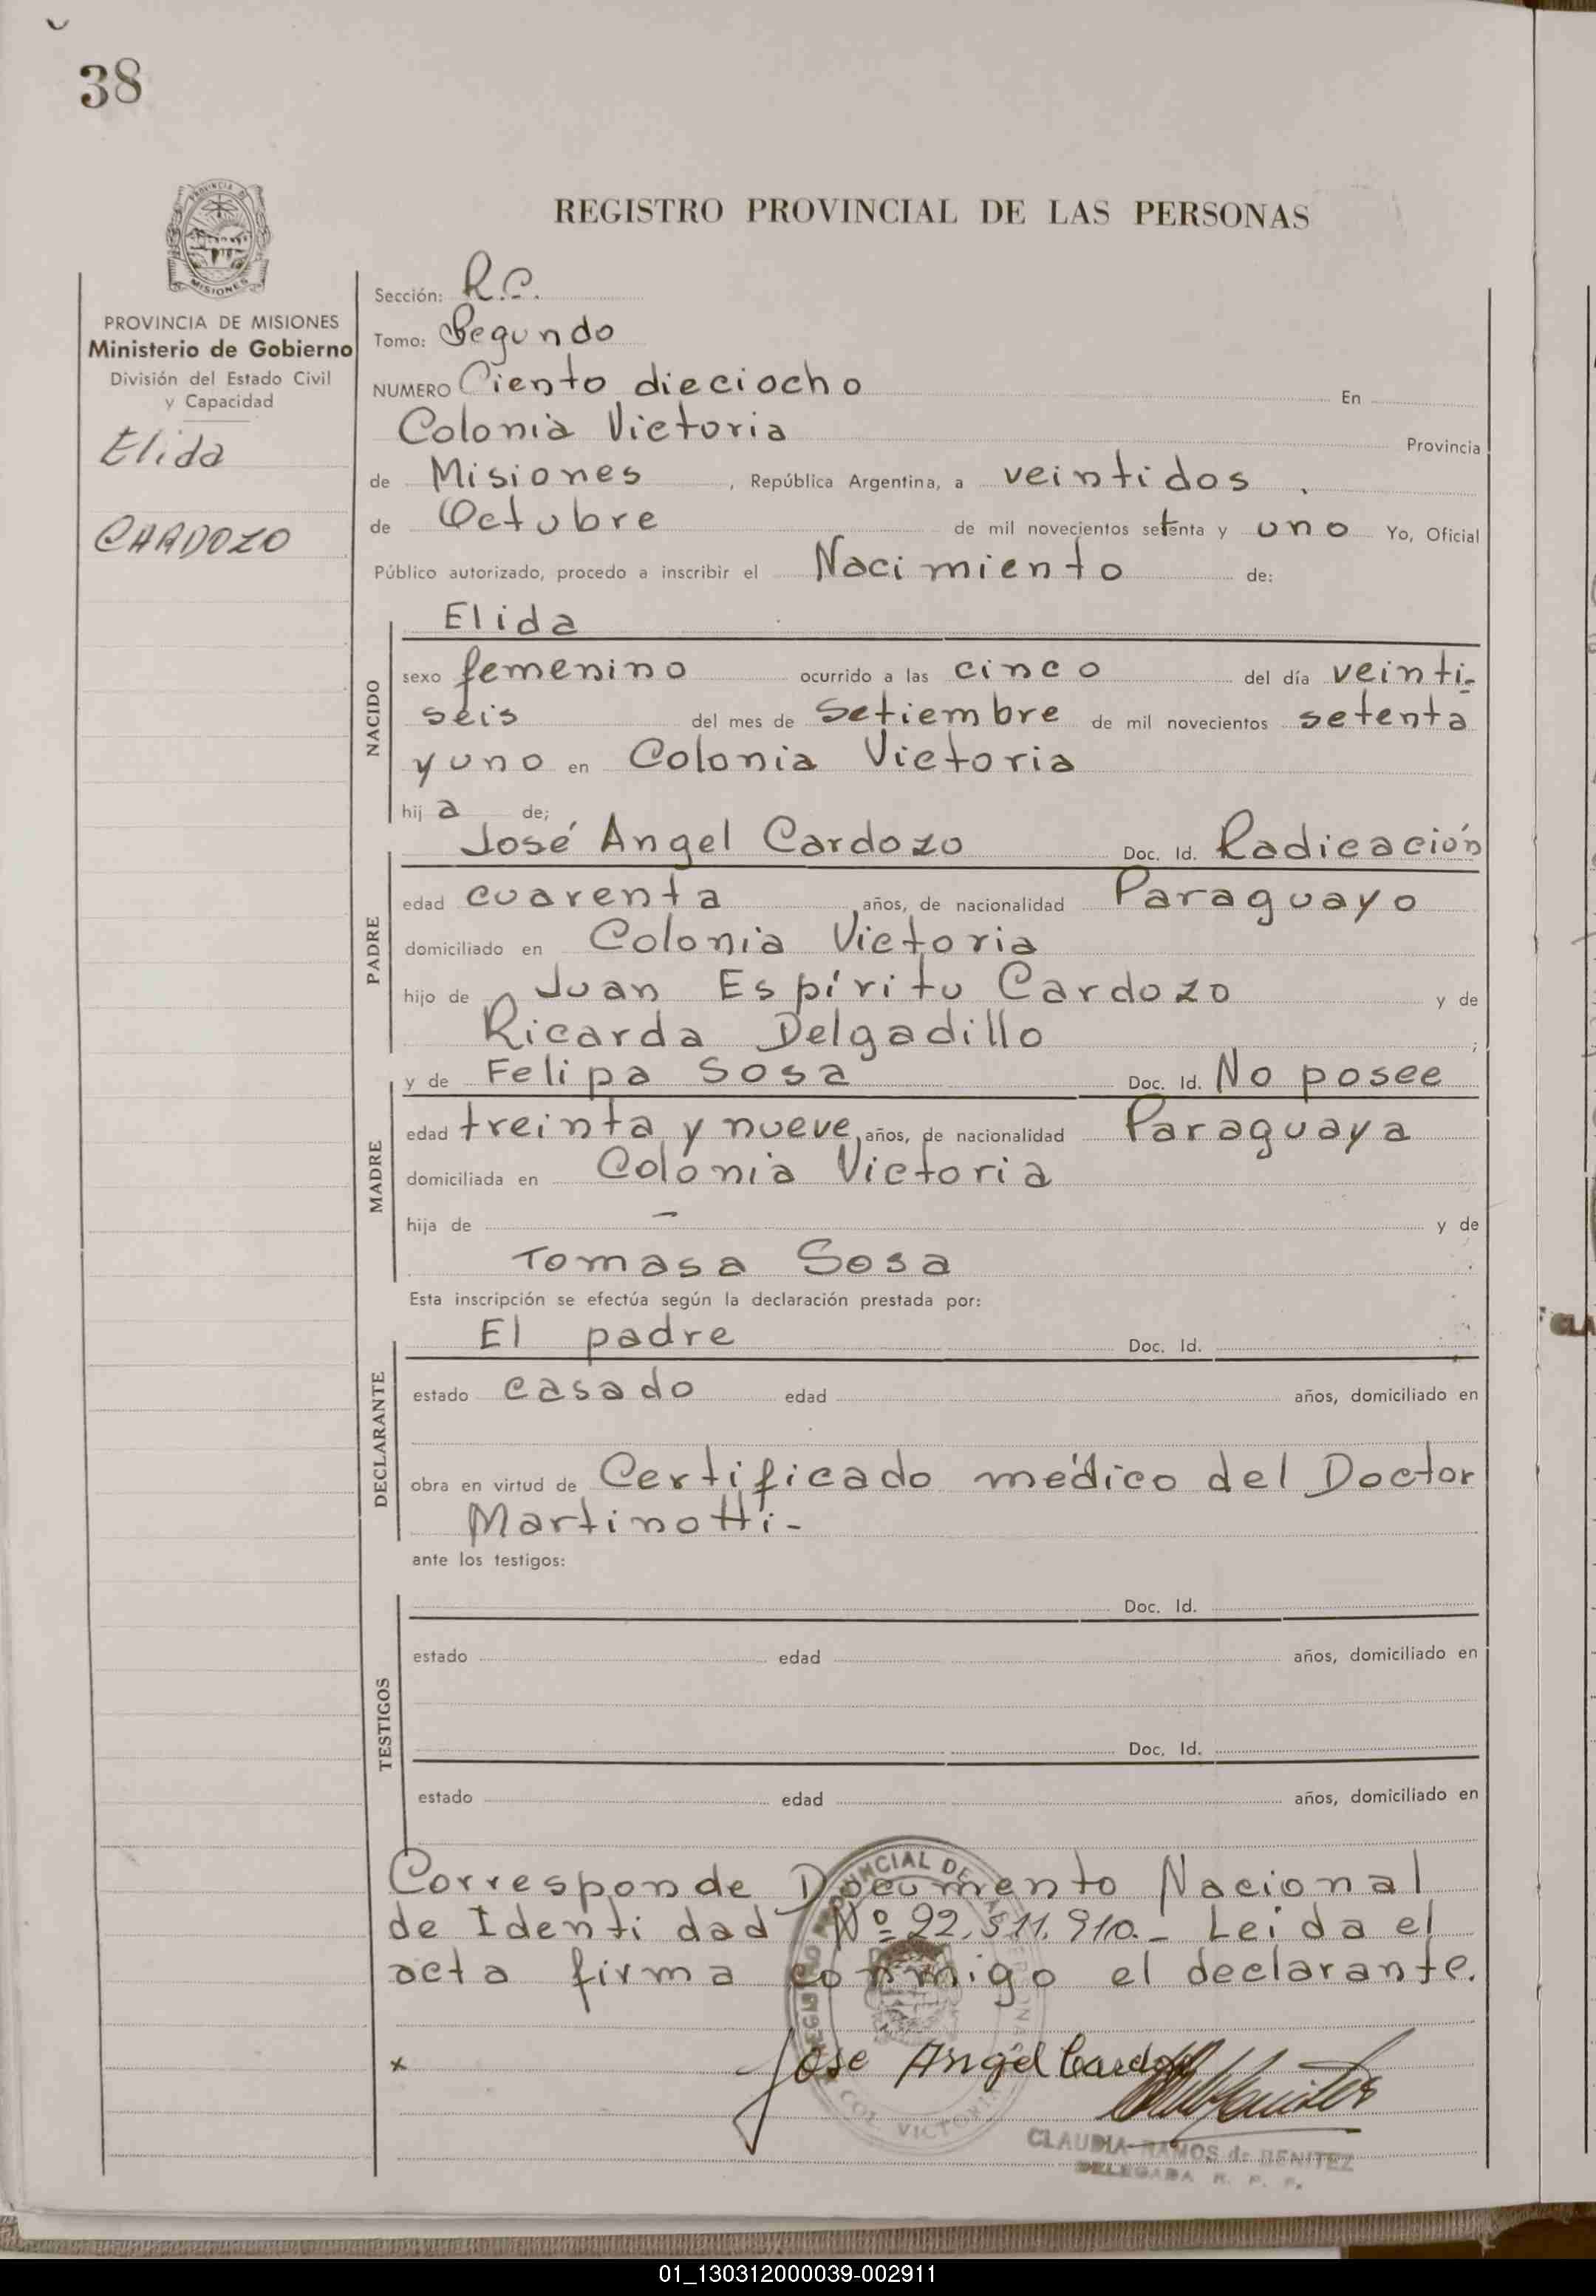 38
PROVINCIA DE
MISIONES
PROVINCIA DE MISIONES
Ministerio de Gobierno
División del Estado Civil
y Capacidad
Elida
CARDOZO
REGISTRO PROVINCIAL DE LAS PERSONAS
Sección: R.C.
Tomo: Segundo
NUMERO Ciento dieciocho En
Colonia Victoria Provincia
de Misiones, República Argentina, a veintidos
de Octubre de mil novecientos setenta y uno Yo, Oficial
Público autorizado, procedo a inscribir el Nacimiento de:
NACIDO
Elida
sexo femenino ocurrido a las cinco del día veinti-
seis del mes de Setiembre de mil novecientos setenta
y uno en Colonia Victoria
hij a de;
PADRE
José Angel Cardozo Doc. Id. Radicación
edad cuarenta años, de nacionalidad Paraguayo
domiciliado en Colonia Victoria
hijo de Juan Espíritu Cardozo y de
Ricarda Delgadillo ;
MADRE
y de Felipa Sosa Doc. Id. No posee
edad treinta y nueve años, de nacionalidad Paraguaya
domiciliada en Colonia Victoria
hija de - y de
Tomasa Sosa
Esta inscripción se efectúa según la declaración prestada por:
DECLARANTE
El padre Doc. Id.
estado casado edad años, domiciliado en
obra en virtud de Certificado médico del Doctor
Martinotti-
ante los testigos:
TESTIGOS
Doc. Id.
estado edad años, domiciliado en
Doc. Id.
estado edad años, domiciliado en
Corresponde Documento Nacional
de Identidad Nº 22.311.910.- Leida el
acta firma conmigo el declarante.
x Jose Angel Cardozo
COL. VICTORIA
CLAUDIA RAMOS de BENITEZ
DELEGADA R. P. P.
CLA
01_130312000039-002911